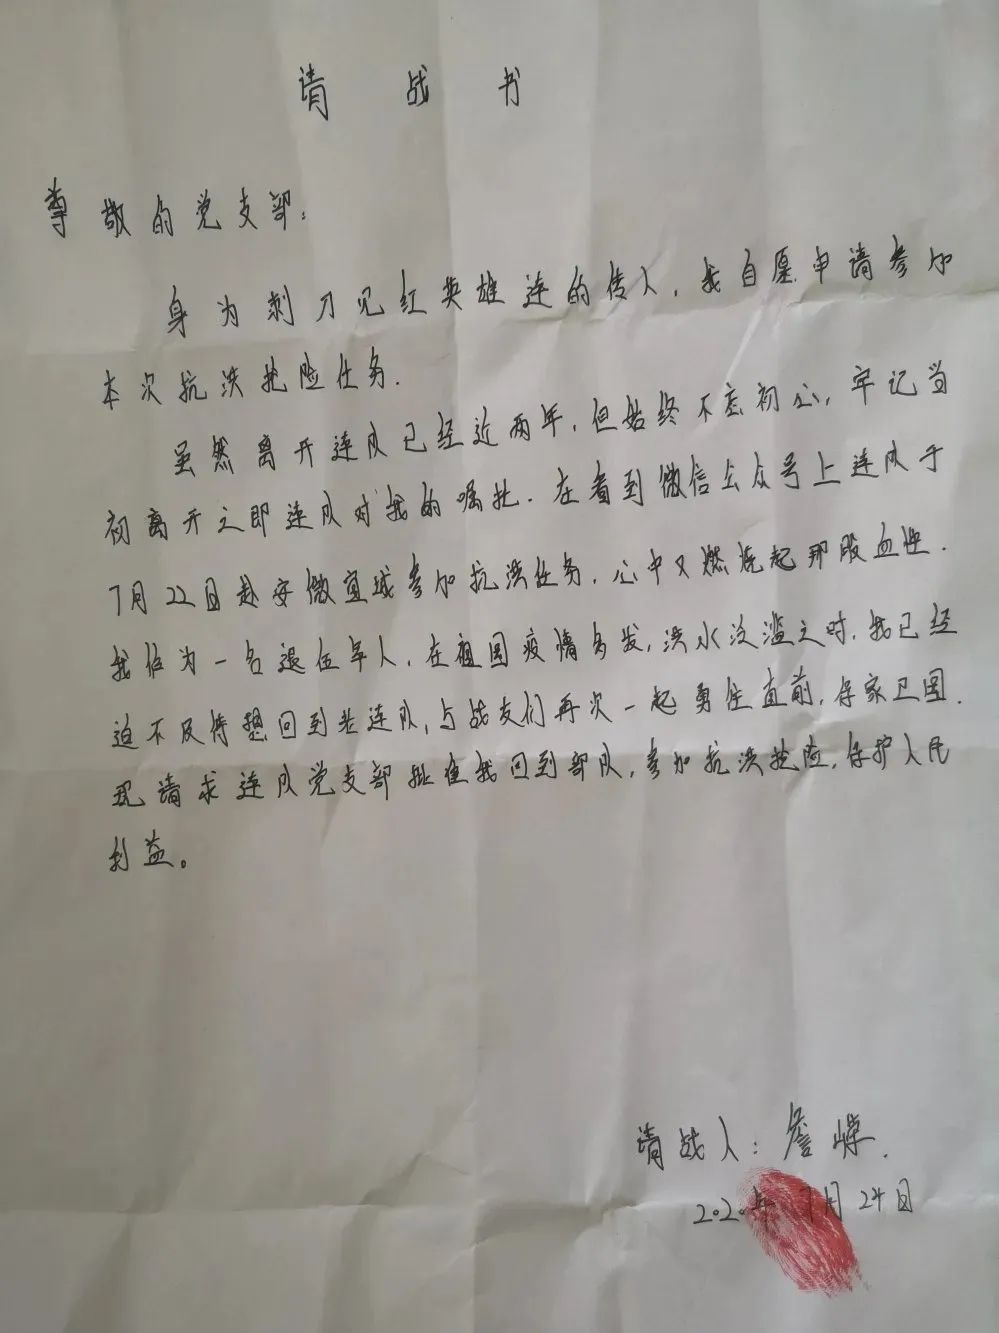 请战书
尊敬的党支部：
身为刺刀见红英雄连的传人，我自愿申请参加
本次抗洪抢险任务．
虽然离开连队已经近两年，但始终不忘初心，牢记当
初离开之即连队对我的嘱托．在看到微信公众号上连队于
7月22日赴安微宣城参加抗洪任务，心中又燃烧起那股血性．
我作为一名退伍军人，在祖国疫情多发，洪水泛滥之时，我已经
迫不及待想回到老连队，与战友们再次一起勇往直前，保家卫国．
现请求连队党支部批准我回到部队，参加抗洪抢险，保护人民
利益。
请战人：詹
2020年7月24日